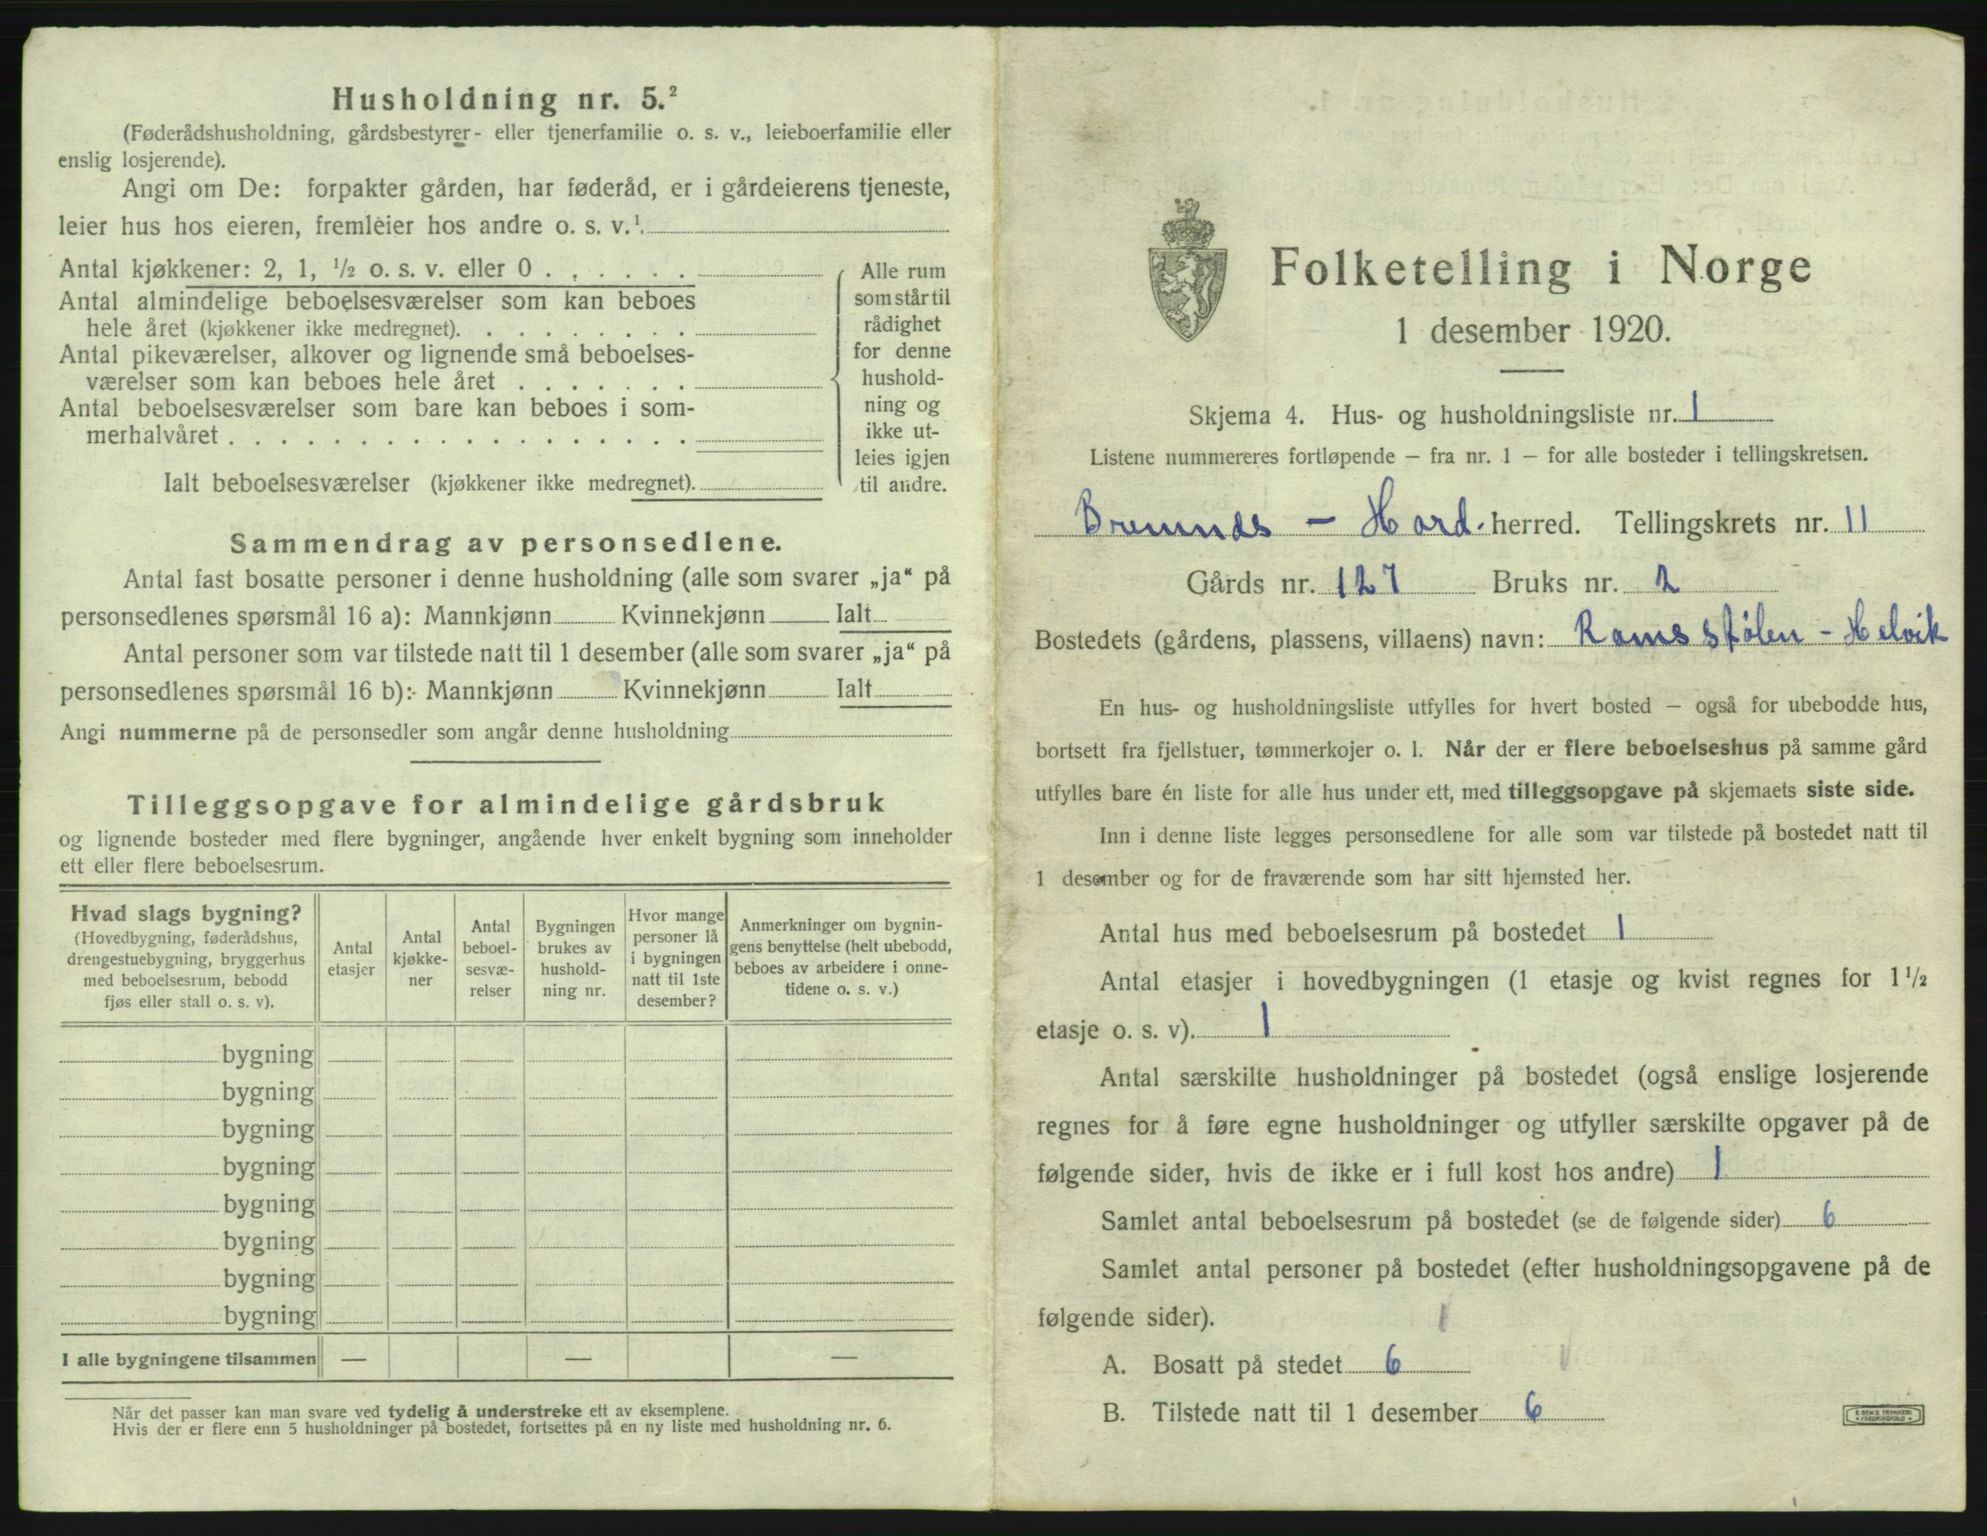 Husholdning nr. 5.²
(Føderådshusholdning, gårdsbestyrer- eller tjenerfamilie o. s. v., leieboerfamilie eller
enslig losjerende).
Angi om De: forpakter gården, har føderåd, er i gårdeierens tjeneste,
leier hus hos eieren, fremleier hos andre o. s. v.¹.
Antal kjøkkener: 2, 1, ½ o. s. v. eller 0 . . . . . .
Antal almindelige beboelsesværelser som kan beboes
hele året (kjøkkener ikke medregnet). . . . . . . . .
Antal pikeværelser, alkover og lignende små beboelses-
værelser som kan beboes hele året . . . . . . .
Antal beboelsesværelser som bare kan beboes i som-
merhalvåret . . . . . . . . . . . . . . . . . .
Ialt beboelsesværelser (kjøkkener ikke medregnet).
Alle rum
som står til
rådighet
for denne
hushold-
ning og
ikke ut-
leies igjen
til andre.
Sammendrag av personsedlene.
Antal fast bosatte personer i denne husholdning (alle som svarer „ja“ på
personsedlenes spørsmål 16 a): Mannkjønn Kvinnekjønn Ialt
Antal personer som var tilstede natt til 1 desember (alle som svarer „ja“ på
personsedlenes spørsmål 16 b): Mannkjønn Kvinnekjønn Ialt
Angi nummerne på de personsedler som angår denne husholdning
Tilleggsopgave for almindelige gårdsbruk
og lignende bosteder med flere bygninger, angående hver enkelt bygning som inneholder
ett eller flere beboelsesrum.
Hvad slags bygning?
(Hovedbygning, føderådshus,
drengestuebygning, bryggerhus
med beboelsesrum, bebodd
fjøs eller stall o. s. v).
Antal
etasjer
Antal
kjøkke-
ner
Antal
beboel-
sesvæ-
relser
Bygningen
brukes av
hushold-
ning nr.
Hvor mange
personer lå
i bygningen
natt til 1ste
desember?
Anmerkninger om bygnin-
gens benyttelse (helt ubebodd,
beboes av arbeidere i onne-
tidene o. s. v.)
bygning
bygning
bygning
bygning
bygning
bygning
bygning
bygning
I alle bygningene tilsammen — — —
Når det passer kan man svare ved tydelig å understreke ett av eksemplene.
Hvis der er flere enn 5 husholdninger på bostedet, fortsettes på en ny liste med husholdning nr. 6.
Folketelling i Norge
1 desember 1920.
Skjema 4. Hus- og husholdningsliste nr. 1
Listene nummereres fortløpende – fra nr. 1 – for alle bosteder i tellingskretsen.
Bremnes - Hord. herred. Tellingskrets nr. 11
Gårds nr. 127 Bruks nr. 2
Bostedets (gårdens, plassens, villaens) navn: Ramsstølen - Helvik
En hus- og husholdningsliste utfylles for hvert bosted – også for ubebodde hus,
bortsett fra fjellstuer, tømmerkojer o. l. Når der er flere beboelseshus på samme gård
utfylles bare én liste for alle hus under ett, med tilleggsopgave på skjemaets siste side.
Inn i denne liste legges personsedlene for alle som var tilstede på bostedet natt til
1 desember og for de fraværende som har sitt hjemsted her.
Antal hus med beboelsesrum på bostedet 1
Antal etasjer i hovedbygningen (1 etasje og kvist regnes for 1½
etasje o. s. v). 1
Antal særskilte husholdninger på bostedet (også enslige losjerende
regnes for å føre egne husholdninger og utfyller særskilte opgaver på de
følgende sider, hvis de ikke er i full kost hos andre) 1
Samlet antal beboelsesrum på bostedet (se de følgende sider) 6
Samlet antal personer på bostedet (efter husholdningsopgavene på de
følgende sider).
A. Bosatt på stedet 6
B. Tilstede natt til 1 desember 6